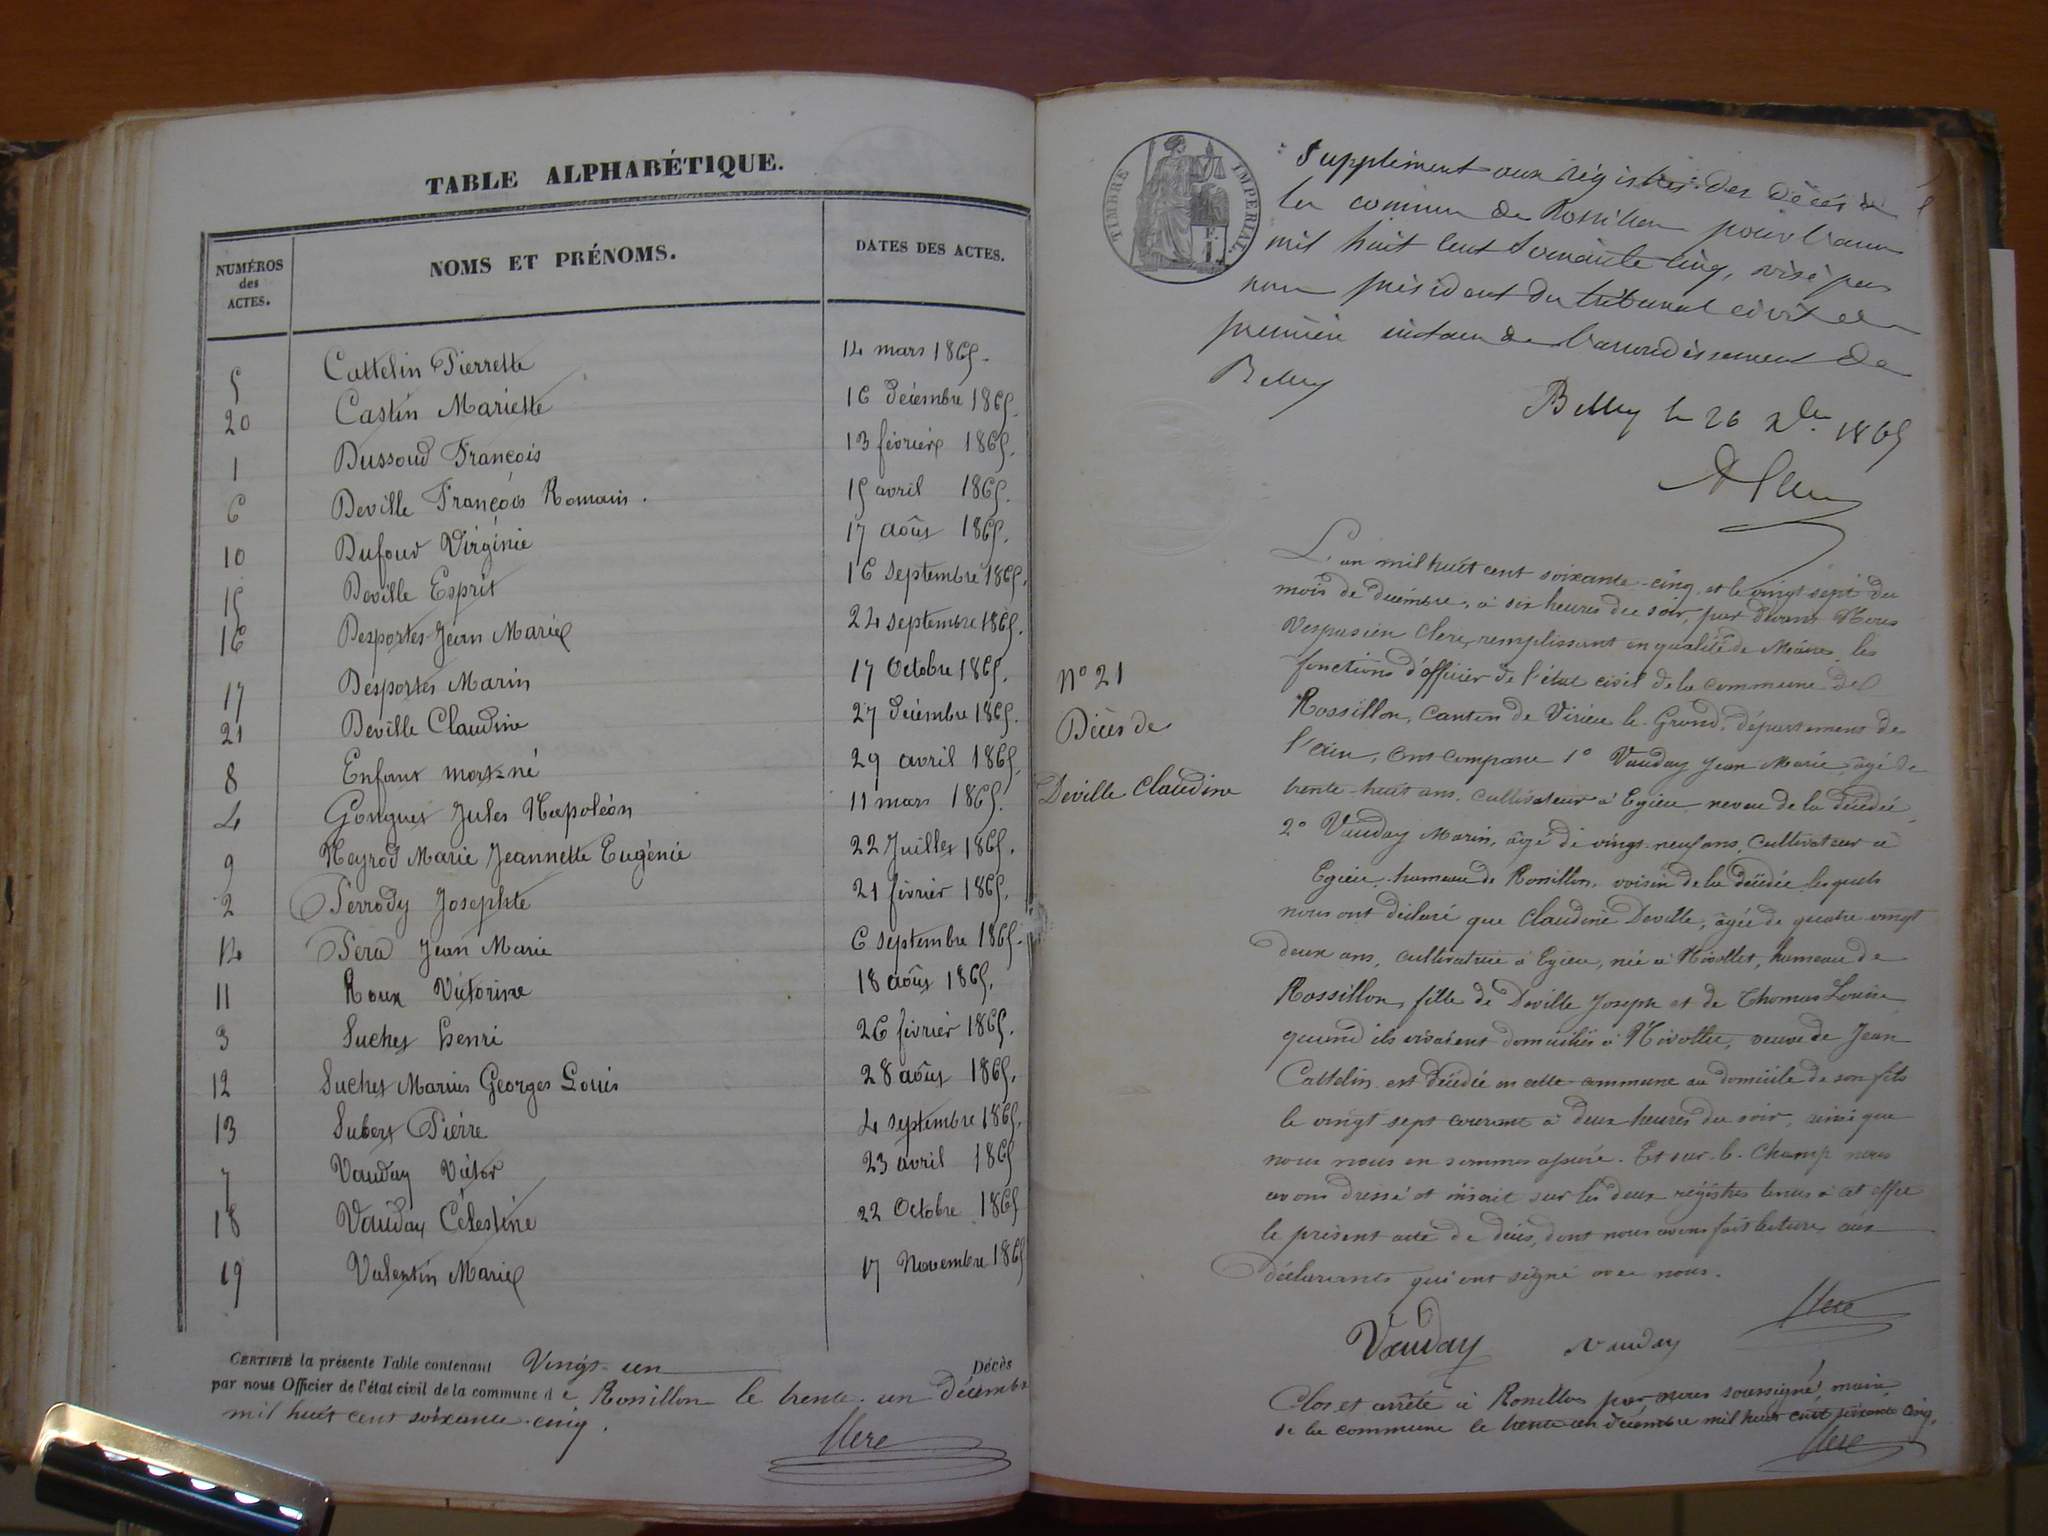 TABLE ALPHABÉTIQUE.
NUMÉROS des ACTES. NOMS ET PRÉNOMS. DATES DES ACTES.
5 Cattelin Pierrette 14 mars 1865.
20 Castin Mariette 16 décembre 1865.
1 Dussoud François 13 février 1865.
6 Deville François Romain. 15 avril 1865.
10 Dufour Virginie 17 août 1865.
15 Deville Esprit 16 septembre 1865.
16 Desportes Jean Marie 24 septembre 1865.
17 Desportes Marin 17 Octobre 1865.
21 Deville Claudine 27 décembre 1865.
8 Enfant mort-né 29 avril 1865.
4 Gonguet Jules Napoléon 11 mars 1865.
9 Neyrod Marie Jeannette Eugénie 22 Juillet 1865.
2 Perrody Josephte 21 février 1865.
14 Pera Jean Marie 6 septembre 1865.
11 Roux Victorine 18 août 1865.
3 Suchet henri 26 février 1865.
12 Suchet Marius Georges Louis 28 août 1865.
13 Subert Pierre 4 septembre 1865.
7 Vauday Victor 23 avril 1865
18 Vauday Célestine 22 Octobre 1865
19 Valentin Marie 17 Novembre 1865
CERTIFIÉ la présente Table contenant Vingt-un Décès
par nous Officier de l'état civil de la commune de Rossillon le trente-un décembre
mil huit cent soixante-cinq.
Clerc
TIMBRE IMPÉRIAL
Supplément aux régistres des décès de
la commune de Rossillon pour l'année
mil huit cent soixante cinq, visé par
nous président du tribunal civil de
première instance de l'arrondissement de
Belley
Belley le 26 Xbre 1865
N° 21
Décès de
Deville Claudine
L'an mil huit cent soixante-cinq et le vingt sept du
mois de décembre, à six heures du soir, par devant Nous
Vespasien Clerc, remplissant en qualité de Maire les
fonctions d'officier de l'état civil de la commune de
Rossillon, canton de Virieu-le-Grand, département de
l'ain, ont comparu 1° Vauday Jean Marie, âgé de
trente-huit ans, cultivateur à Egieu neveu de la décédée,
2° Vauday Marin, âgé de vingt-neuf ans, cultivateur à
Egieu, hameau de Rossillon, voisin de la décédée lesquels
nous ont déclaré que Claudine Deville, âgée de quatre-vingt
deux ans, cultivatrice à Egieu, née à Nivollet, hameau de
Rossillon, fille de Deville Joseph et de Thomas Louise
quand ils vivaient domiciliés à Nivollet, veuve de Jean
Cattelin est décédée en cette commune au domicile de son fils
le vingt sept courant à deux heures du soir, ainsi que
nous nous en sommes assuré. Et sur-le-Champ nous
avons dressé et inscrit sur les deux régistres tenus à cet effet
le présent acte de décès, dont nous avons fait lecture aux
déclarants qui ont signé avec nous.
Clerc
Vauday Vauday
Clos et arrêté à Rossillon par nous soussigné, maire
de la commune le trente un décembre mil huit cent soixante cinq.
Clerc